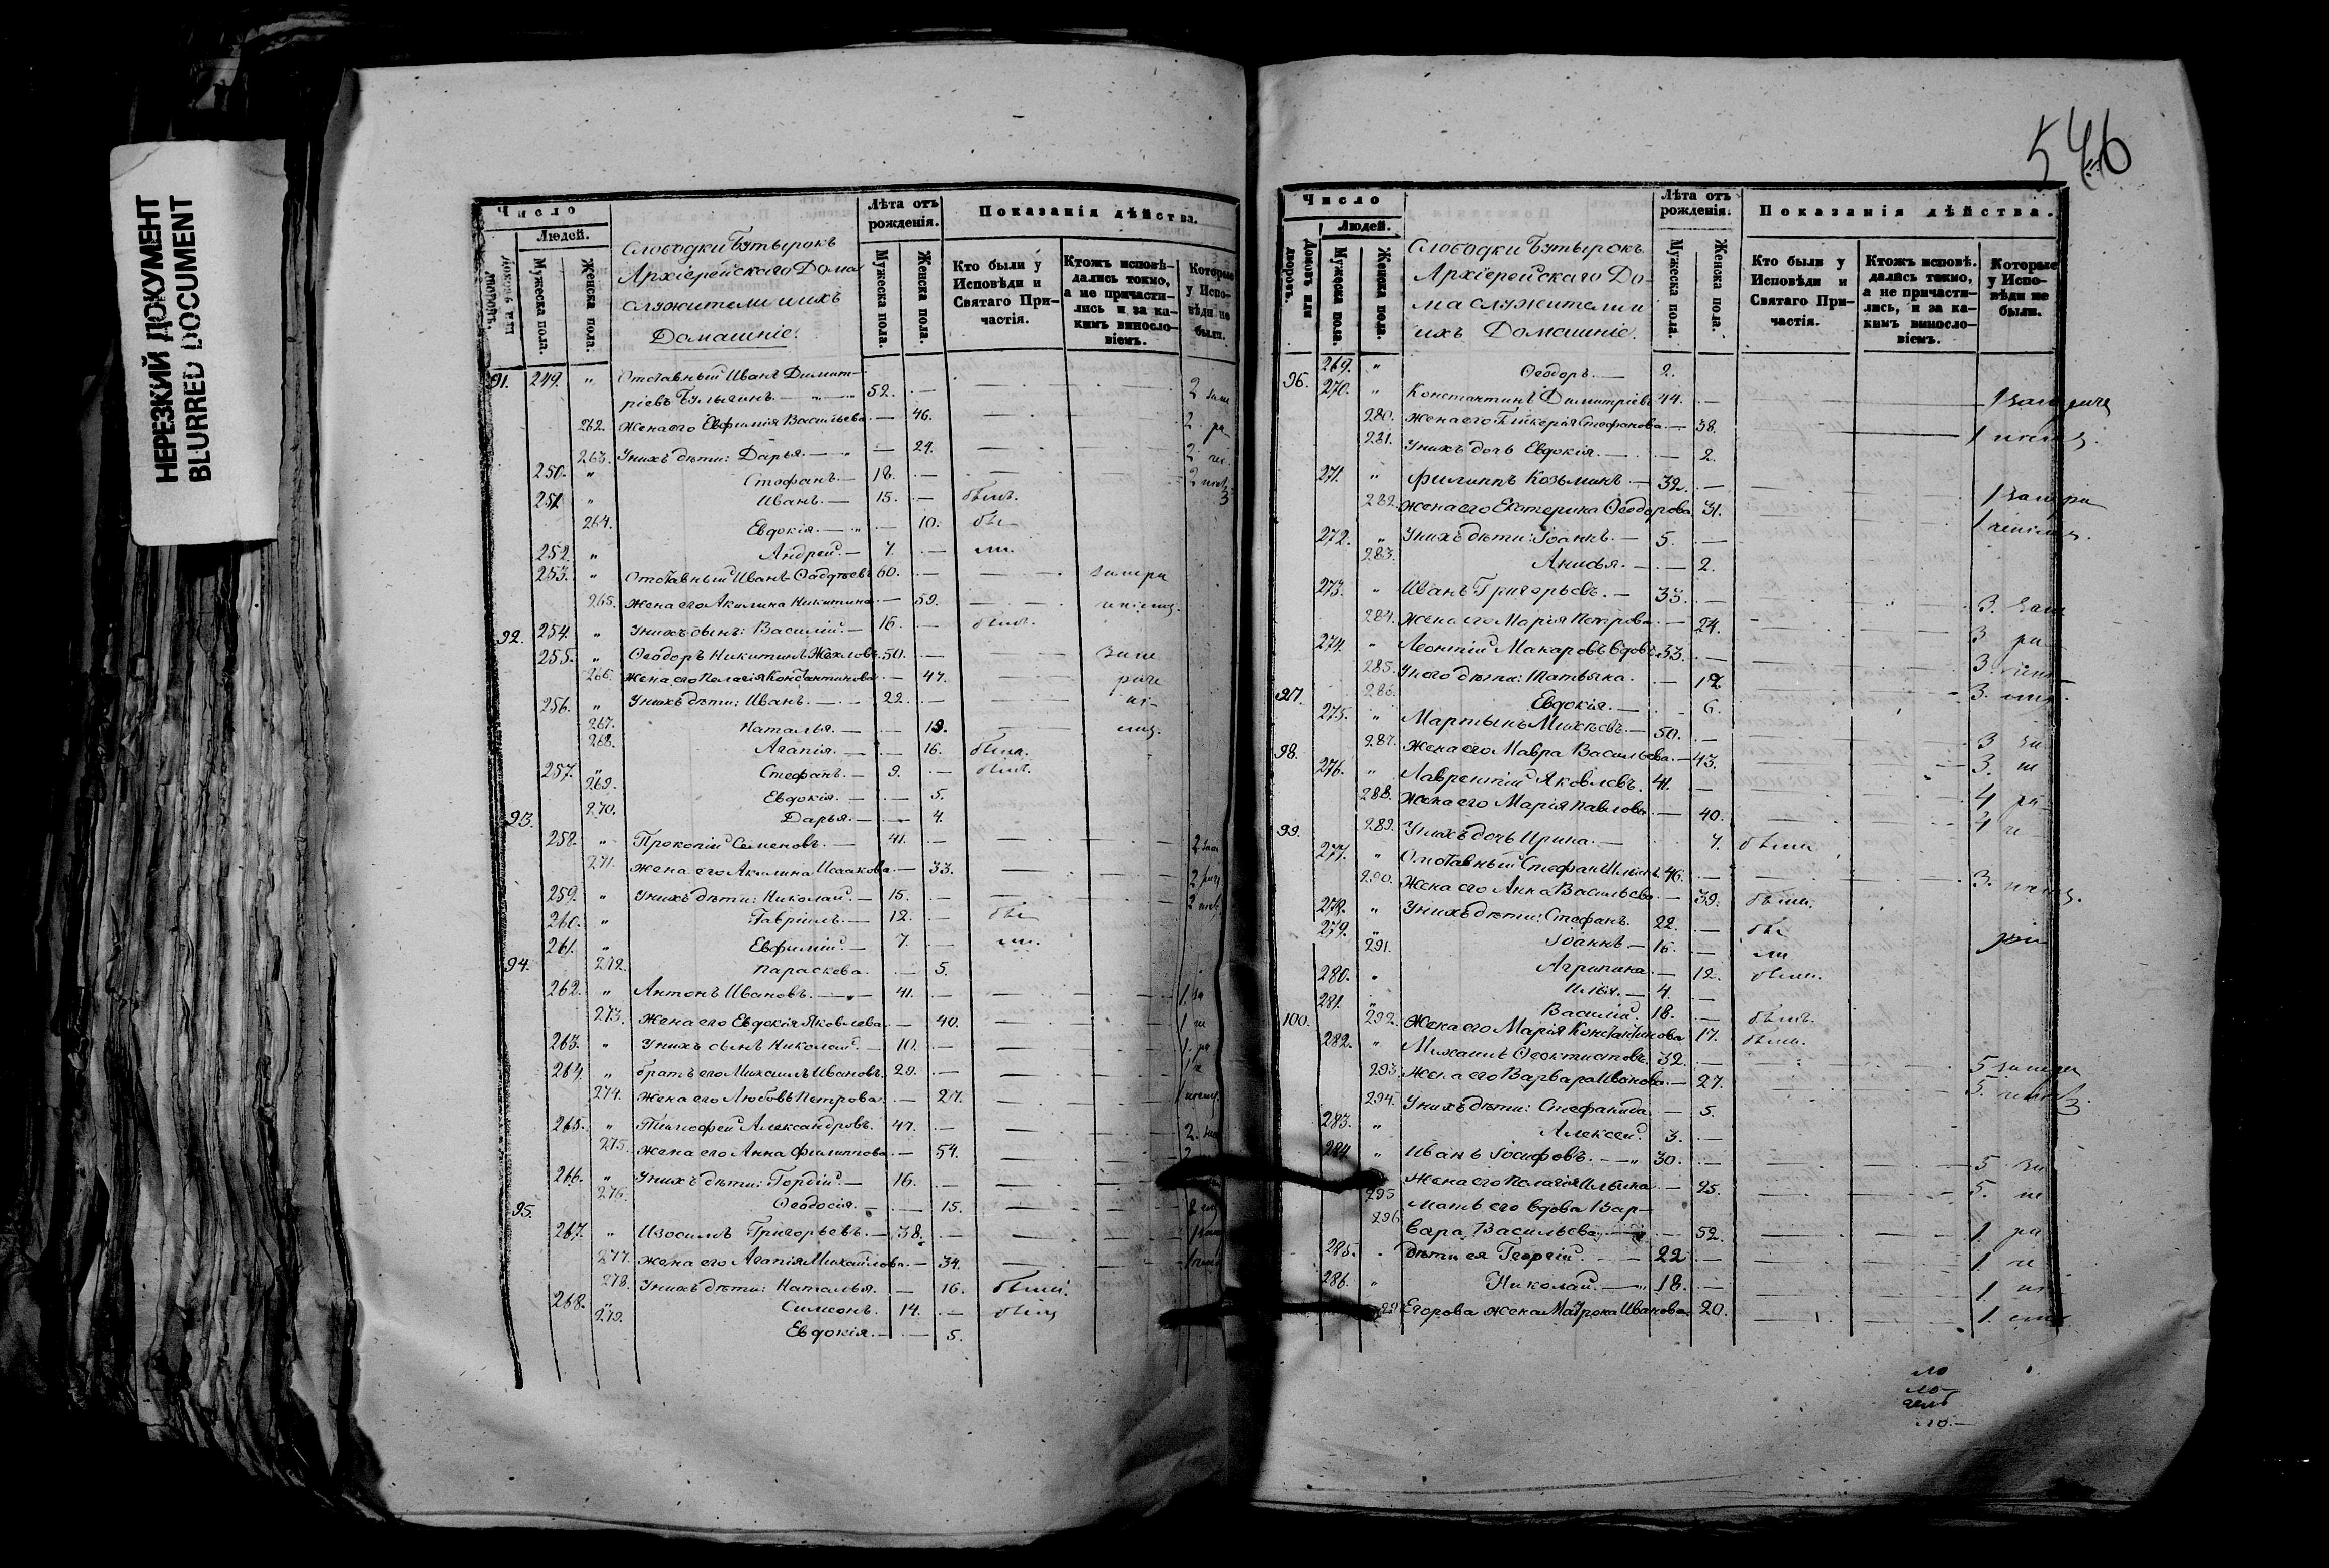 НЕРЕЗКИЙ ДОКУМЕНТ
BLURRED DOCUMENT
Число
Людей.
Мужеска пола.
Женска пола.
Слободки Бутырокъ
Архіерейскаго Дома
служители и ихъ
Домашніе.
Лѣта отъ рожденія.
Мужеска пола.
Женска пола.
Показанія дѣйства.
Кто были у Исповѣди и Святаго Причастія.
Ктожъ исповѣдались токмо, а не причастились и за какимъ винословіемъ.
Которые у Исповѣди не были.
91. 249. " Отставный Иванъ Димит-
ріевъ Булыгинъ. 52. 2
262. Жена его Евфимія Васильева. 46. 2
263. У нихъ дѣти: Дарья. 24. 2
250. " Стефанъ. 18. 2
251. " Иванъ. 15. былъ. 3
264. Евдокія. 10. бы
252. " Андрей. 7. ли.
253. " Отставный Иванъ 60.
265. Жена его Акилина Никитина. 59.
92. 254. " У нихъ сынъ: Василій. 16. былъ.
255. " Ѳеодоръ Никитинъ 50.
266. Жена его Пелагія Константинова. 47.
256. " У нихъ дѣти: Иванъ. 22.
267. Наталья. 19.
268. Агапія. 16. была.
257. " Стефанъ. 9. былъ.
269. Евдокія. 5.
270. Дарья. 4.
93.
258. " Прокопій Семеновъ. 41. 2
271. Жена его Акилина Исаакова. 33. 2
259. " У нихъ дѣти: Николай. 15. 2
260. " Гавріилъ. 12. бы
261. " Евфимій. 7. ли.
94. 272. Параскева. 5.
262. " Антонъ Ивановъ. 41. 1
273. Жена его Евдокія Яковлева. 40. 1
263. " У нихъ сынъ Николай. 10. 1
264. " Братъ его Михаилъ Ивановъ. 29. 1
274. Жена его Любовь Петрова. 27. 1
265. " Тимофей Александровъ. 47. 2.
275. Жена его Анна Филиппова. 54. 2
266. " У нихъ дѣти: Гордій. 16.
276. Ѳеодосія. 15. 2
95.
267. " Изосимъ Григорьевъ. 38. 1
277. Жена его Агапія Михайлова. 34. 1
278. У нихъ дѣти: Наталья. 16. были.
268. " Симеонъ. 14.
279. Евдокія. 5.
546
Число
Людей.
Домовъ или дворовъ.
Мужеска пола.
Женска пола.
Слободки Бутырокъ
Архіерейскаго До-
ма служители и
ихъ Домашніе.
Лѣта отъ рожденія.
Мужеска пола.
Женска пола.
Показанія дѣйства.
Кто были у Исповѣди и Святаго Причастія.
Ктожъ исповѣдались токмо, а не причастились, и за какимъ винословіемъ.
Которые у Исповѣди не были.
269. " Ѳеодоръ. 2.
96. 270. " Константинъ Димитріевъ 44. 1
280. Жена его Гликерія Стефанова. 38. 1
281. У нихъ дочь Евдокія. 2.
271. " Филиппъ Козьминъ. 32. 1
282. Жена его Екатерина Ѳеодорова 31. 1
272. " У нихъ дѣти: Іоаннъ. 5.
283. Анисья. 2.
273. " Иванъ Григорьевъ. 33. 3.
284. Жена его Марія Петрова. 24. 3
274. " Леонтій Макаровъ вдовъ 33. 3
285. У него дѣти: Татьяна. 12 3.
97. 286. Евдокія. 6.
275. " Мартынъ Михѣевъ. 50. 3
287. Жена его Мавра Васильева. 43. 3.
98.
276. " Лаврентій Яковлевъ. 41. 4
288. Жена его Марія Павлова. 40. 4
289. У нихъ дочь Ирина. 7. была
99.
277. " Отставный Стефанъ Ильинъ 46. 3.
290. Жена его Анна Васильева. 39. были.
278. " У нихъ дѣти: Стефанъ. 22. бы
279. " Іоаннъ. 16. ли
291. Агрипина. 12. были.
280. " Илья. 4.
281. " Василій. 18. былъ.
100. 292. Жена его Марія Константинова 17. была.
282. " Михаилъ Ѳеоктистовъ. 32. 5
293. Жена его Варвара Иванова. 27. 5.
294. У нихъ дѣти: Стефанида. 5.
283. " Алексей. 3.
284. " Иванъ Іосифовъ. 30. 5
295 Жена его Пелагія Ильина. 25. 5.
296 Мать его вдова Вар-
вара Васильева. 52. 1
285. " Дѣти ея Георгій. 22 1.
286. " Николай. 18. 1
Егорова жена Матрона Иванова. 20. 1